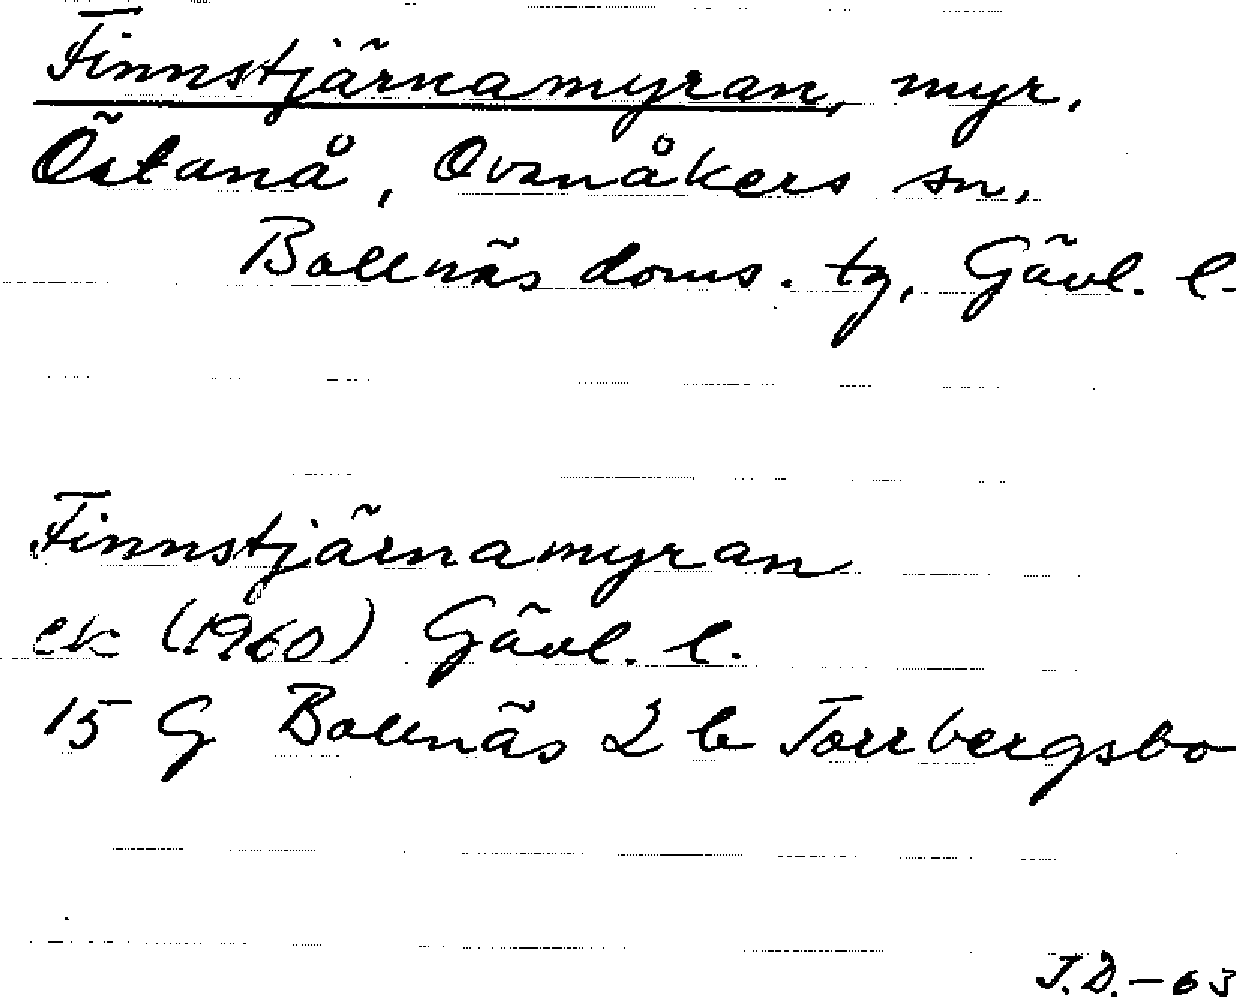 Finnstjärnamyran, myr.
Östanå, Ovanåkers sn.
Bollnäs doms. tg, Gävl. l.
Finnstjärnamyran
ek (1960) Gävl. l.
15 G Bollnäs 2 b Torrbergsbo
J.D. - 63